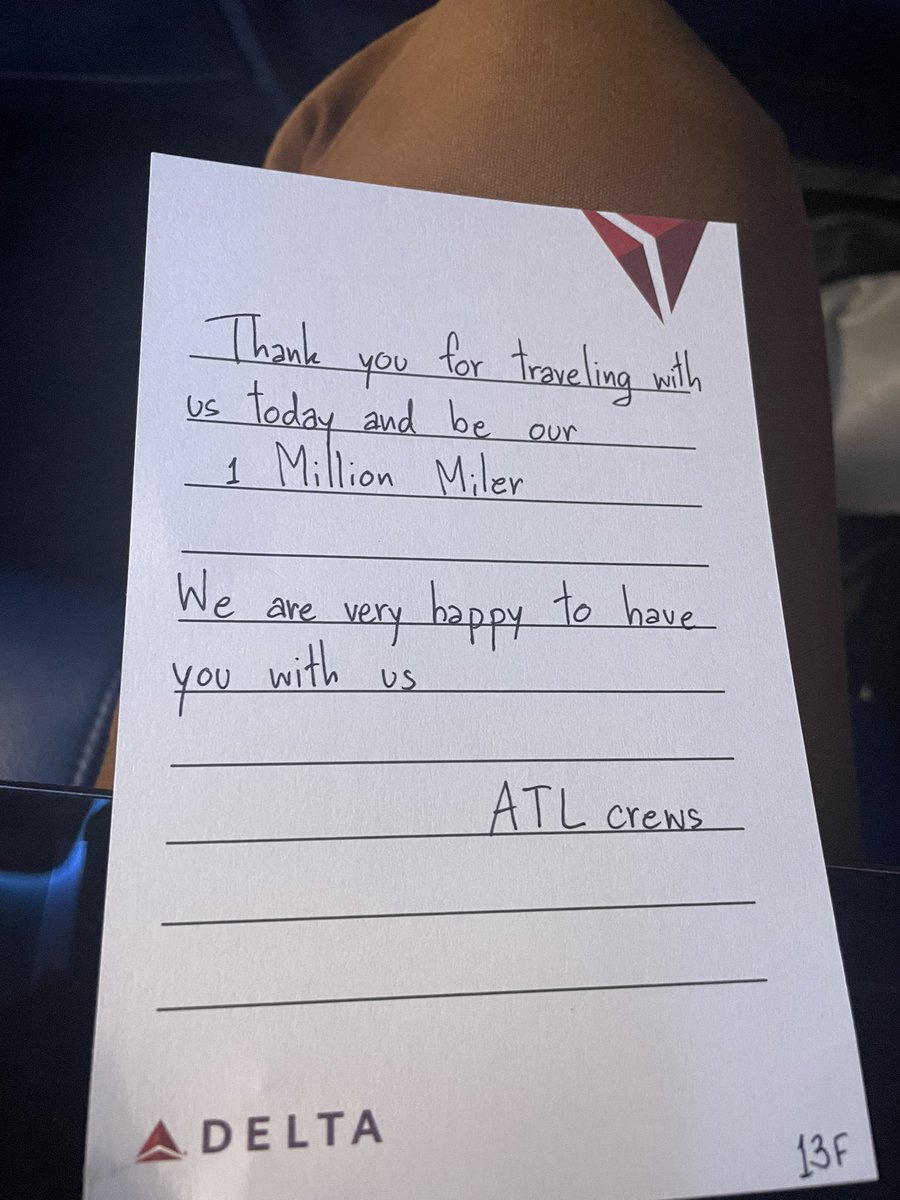 Thank you for traveling with
us today and be our
1 Million Miler
We are very happy to have
you with us
ATL crews
DELTA
13F